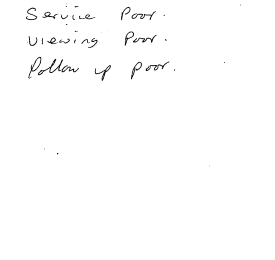 Service Poor.
Viewing Poor.
Follow up poor.